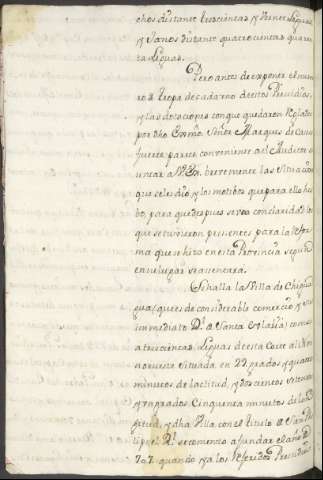 chos distante trescientas, y treinta Leguas,
y Janos distante quatrocientas quaren
ta Leguas.
Pero antes de exponer el nume
ro de tropa de cada uno de estos Presidios,
y las dotaciones con que quedaron Reglados
por dho Exmo. Señor Marques de Casa
fuerte parece conveniente a el Auditor
a V. Ex. brevemente las situacion
que se les dio, y los motibos que para ello hu
bo, para que despues se vea con claridad lo
que se tuvieron presentes para la Refor
ma que se hizo en esta Provincia segun
en su lugar se asentara.
Se halla la Villa de Chigua
gua, que es de considerable comercio, y
immediato Rl. de Santa Eulalia, como
a trescientas Leguas de esta Corte al
noroveste situada en 29 grados, y quatro
minutos de lactitud, y doscientos setenta
y un grados Cinquenta minutos de lon
gitud, y dha Villa con el titulo de San Phe
lipe el Rl. se comenso a fundar el año de
707. quando ya los Referidos Presidios